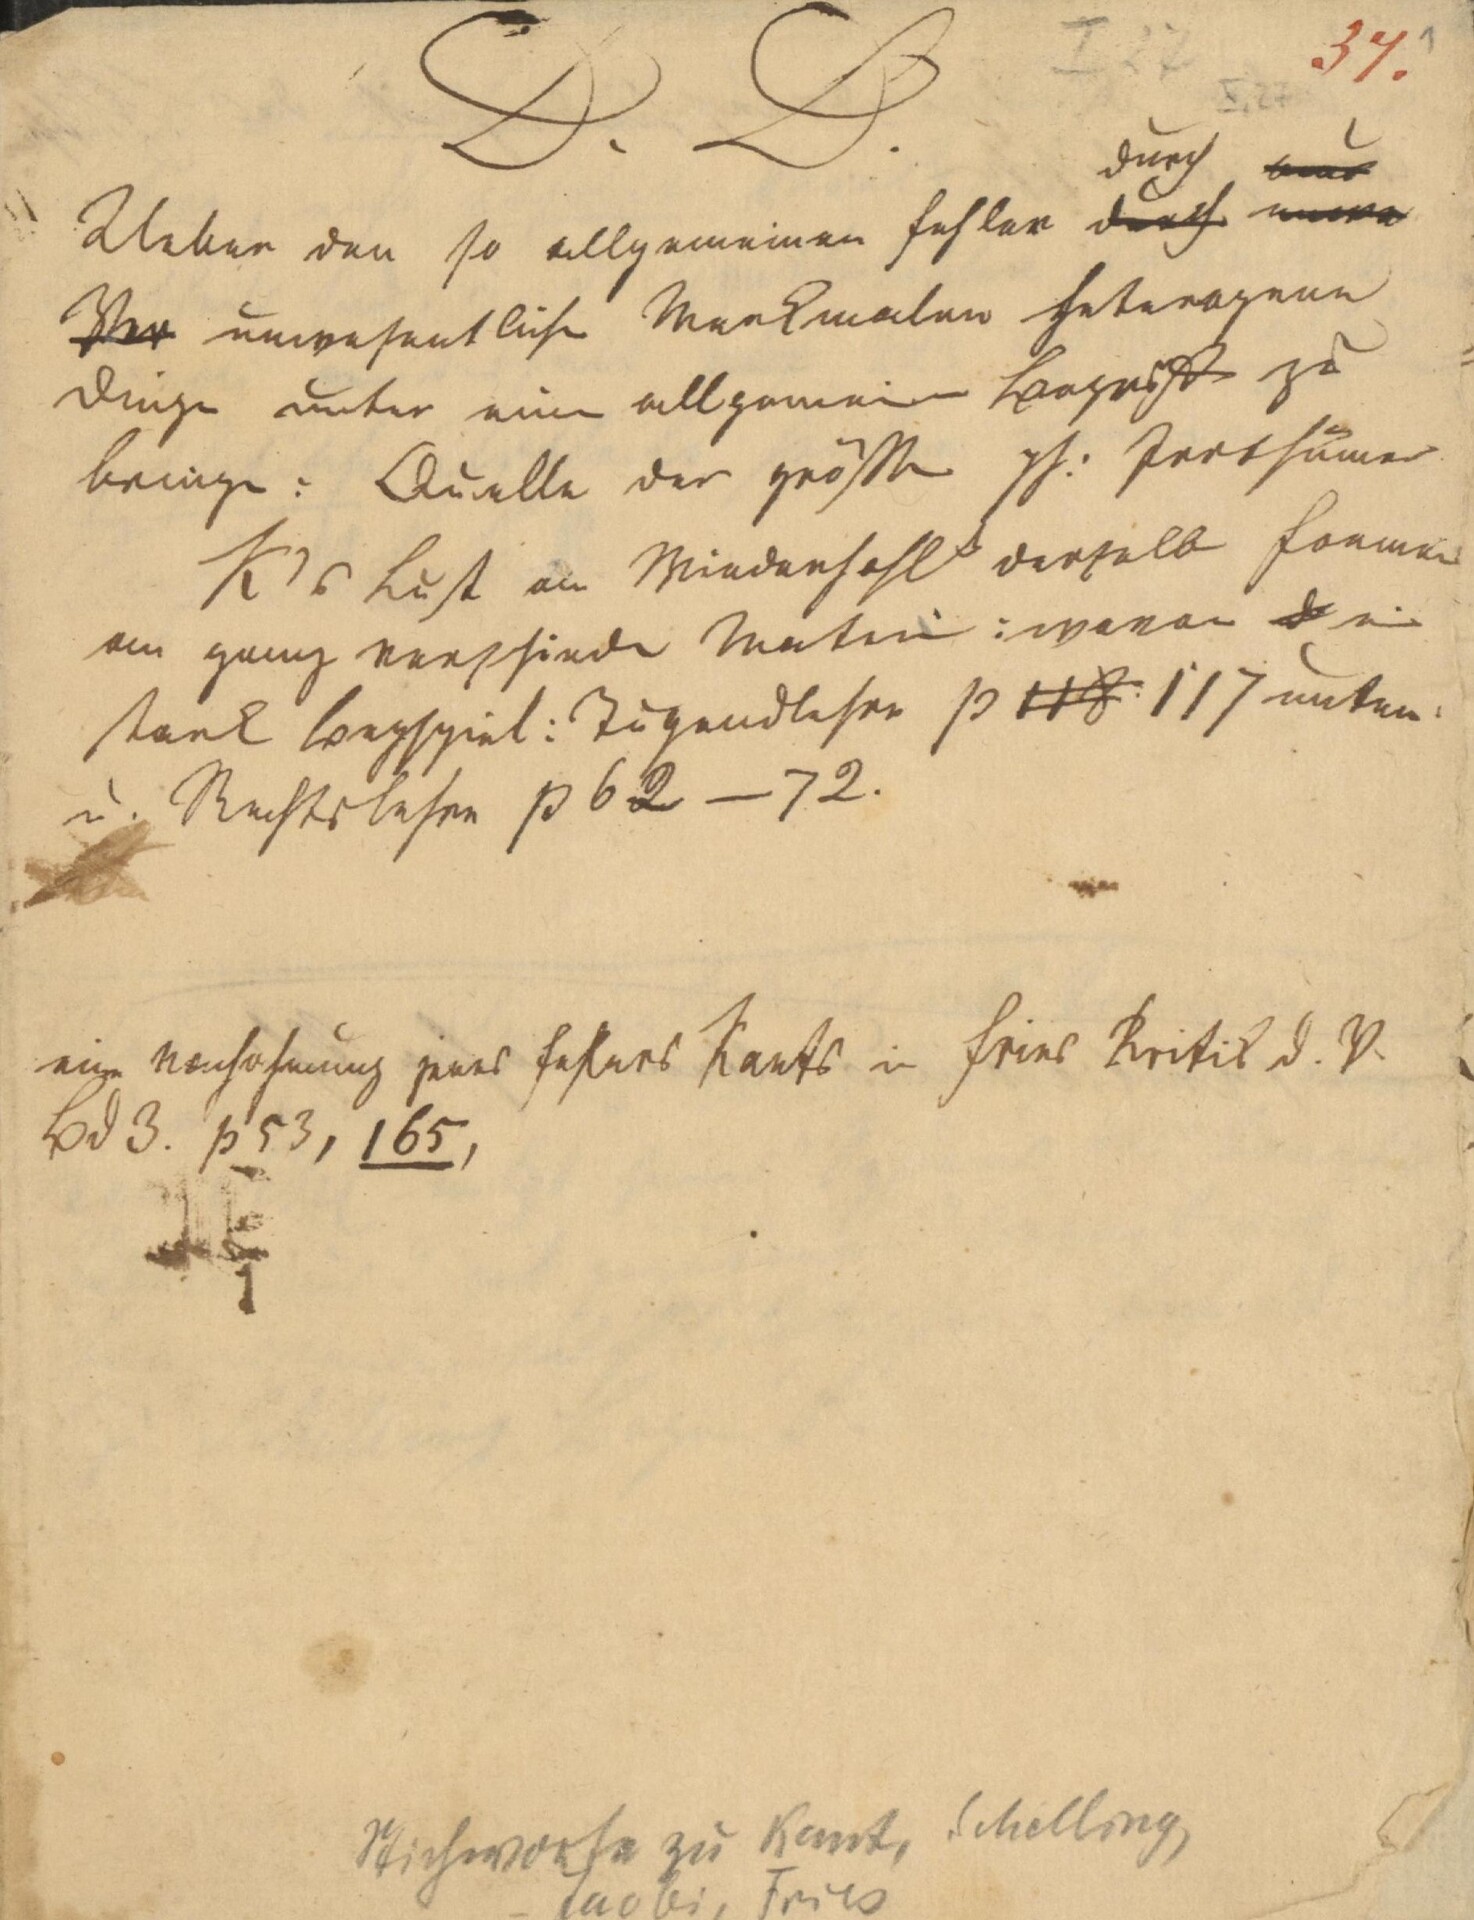 D. D.
I 27
37. 1
X, 27
durch
Ueber den so allgemeinen Fehler durch
Ver unwesentliche Merkmalen heterogene
Dinge unter eine allgemeine Begriff zu
bringe: Quelle der größte ph: Irrthümer
K's Lust an Wiederhohl derselb Formen
an ganz verschiede Materi: wovon d ein
stark Beyspiel: Tugendlehre p 118. 117 unten:
u. Rechtslehre p 62 — 72.
eine Nachahmung jenes Fehlers Kants in Fries Kritik d. V.
Bd 3. p 53, 165,
Stichworte zu Kant, Schelling,
Jacobi, Fries